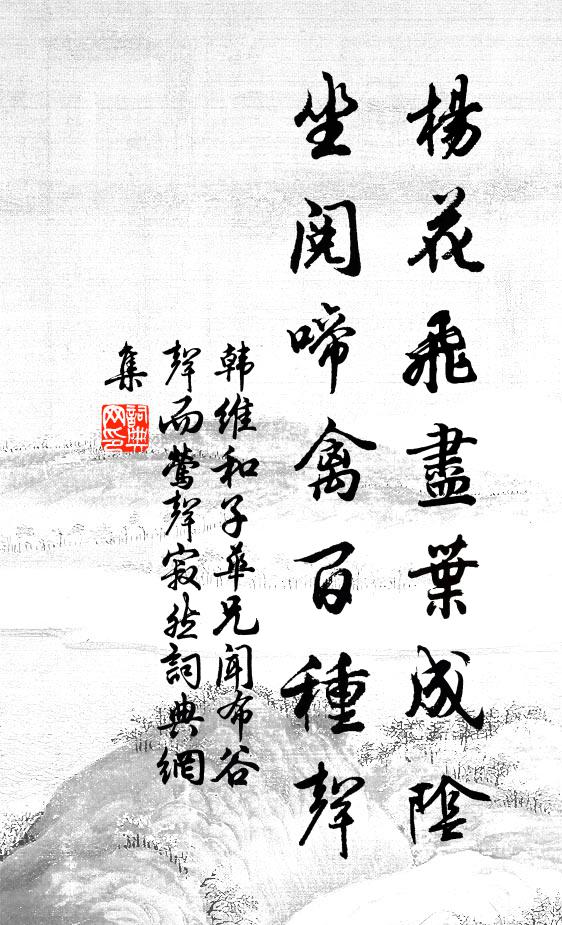 楊花飛盡葉成陰
坐閱啼禽百種聲
韩維和子華兄聞布谷
聲而鶯聲寂然詞典網
集
詞典
网印